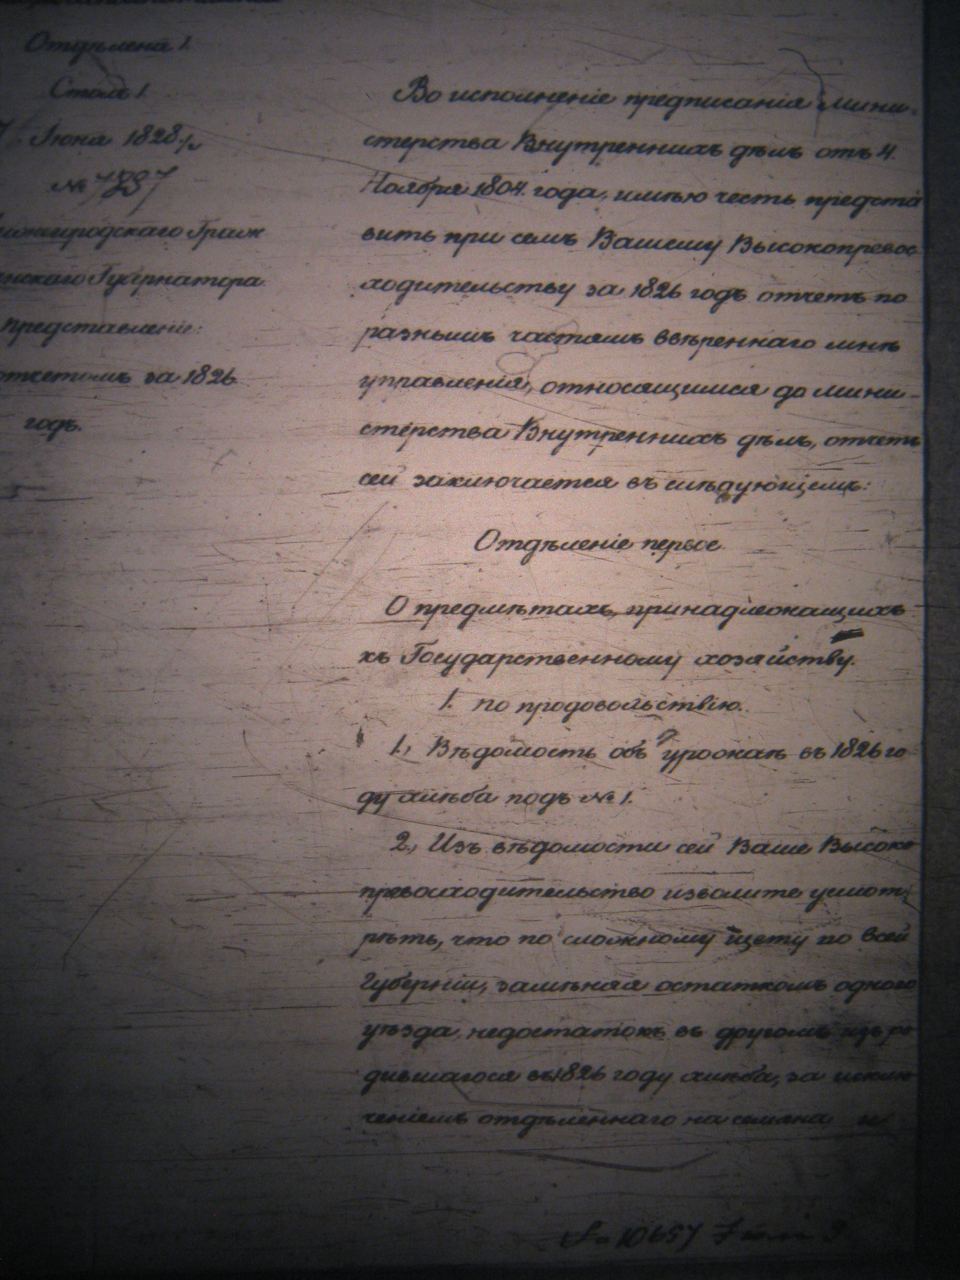 Отдѣленія 1.
Столъ 1.
Іюня 1828 г.
№ 7
Нижегородскаго Граж
данскаго Губернатора
представленіе:
отчетомъ за 1826
годъ.
Во исполненіе предписанія Мини-
стерства Внутреннихъ дѣлъ отъ 4.
Ноября 1804. года, имѣю честь предста
вить при семъ Вашему Высокопревос
ходительству за 1826 годъ отчетъ по
разнымъ частямъ ввѣреннаго мнѣ
управленія, относящимся до Мини-
стерства Внутреннихъ дѣлъ, отчетъ
сей заключается въ слѣдующемъ:
Отдѣленіе первое
О предмѣтахъ, принадлежащихъ
къ Государственному хозяйству.
1. по продовольствію.
1., Вѣдомость объ урожаѣ въ 1826 го
ду хлѣба подъ № 1.
2., Изъ вѣдомости сей Ваше Высоко
превосходительство изволите усмот,
рѣть, что по сложному щету по всей
Губерніи, замѣняя остаткомъ одного
уѣзда, недостатокъ въ другомъ изъ ро
дившагося въ 1826 году хлѣба, за исклю
ченіемъ отдѣленнаго на семяна и
10657